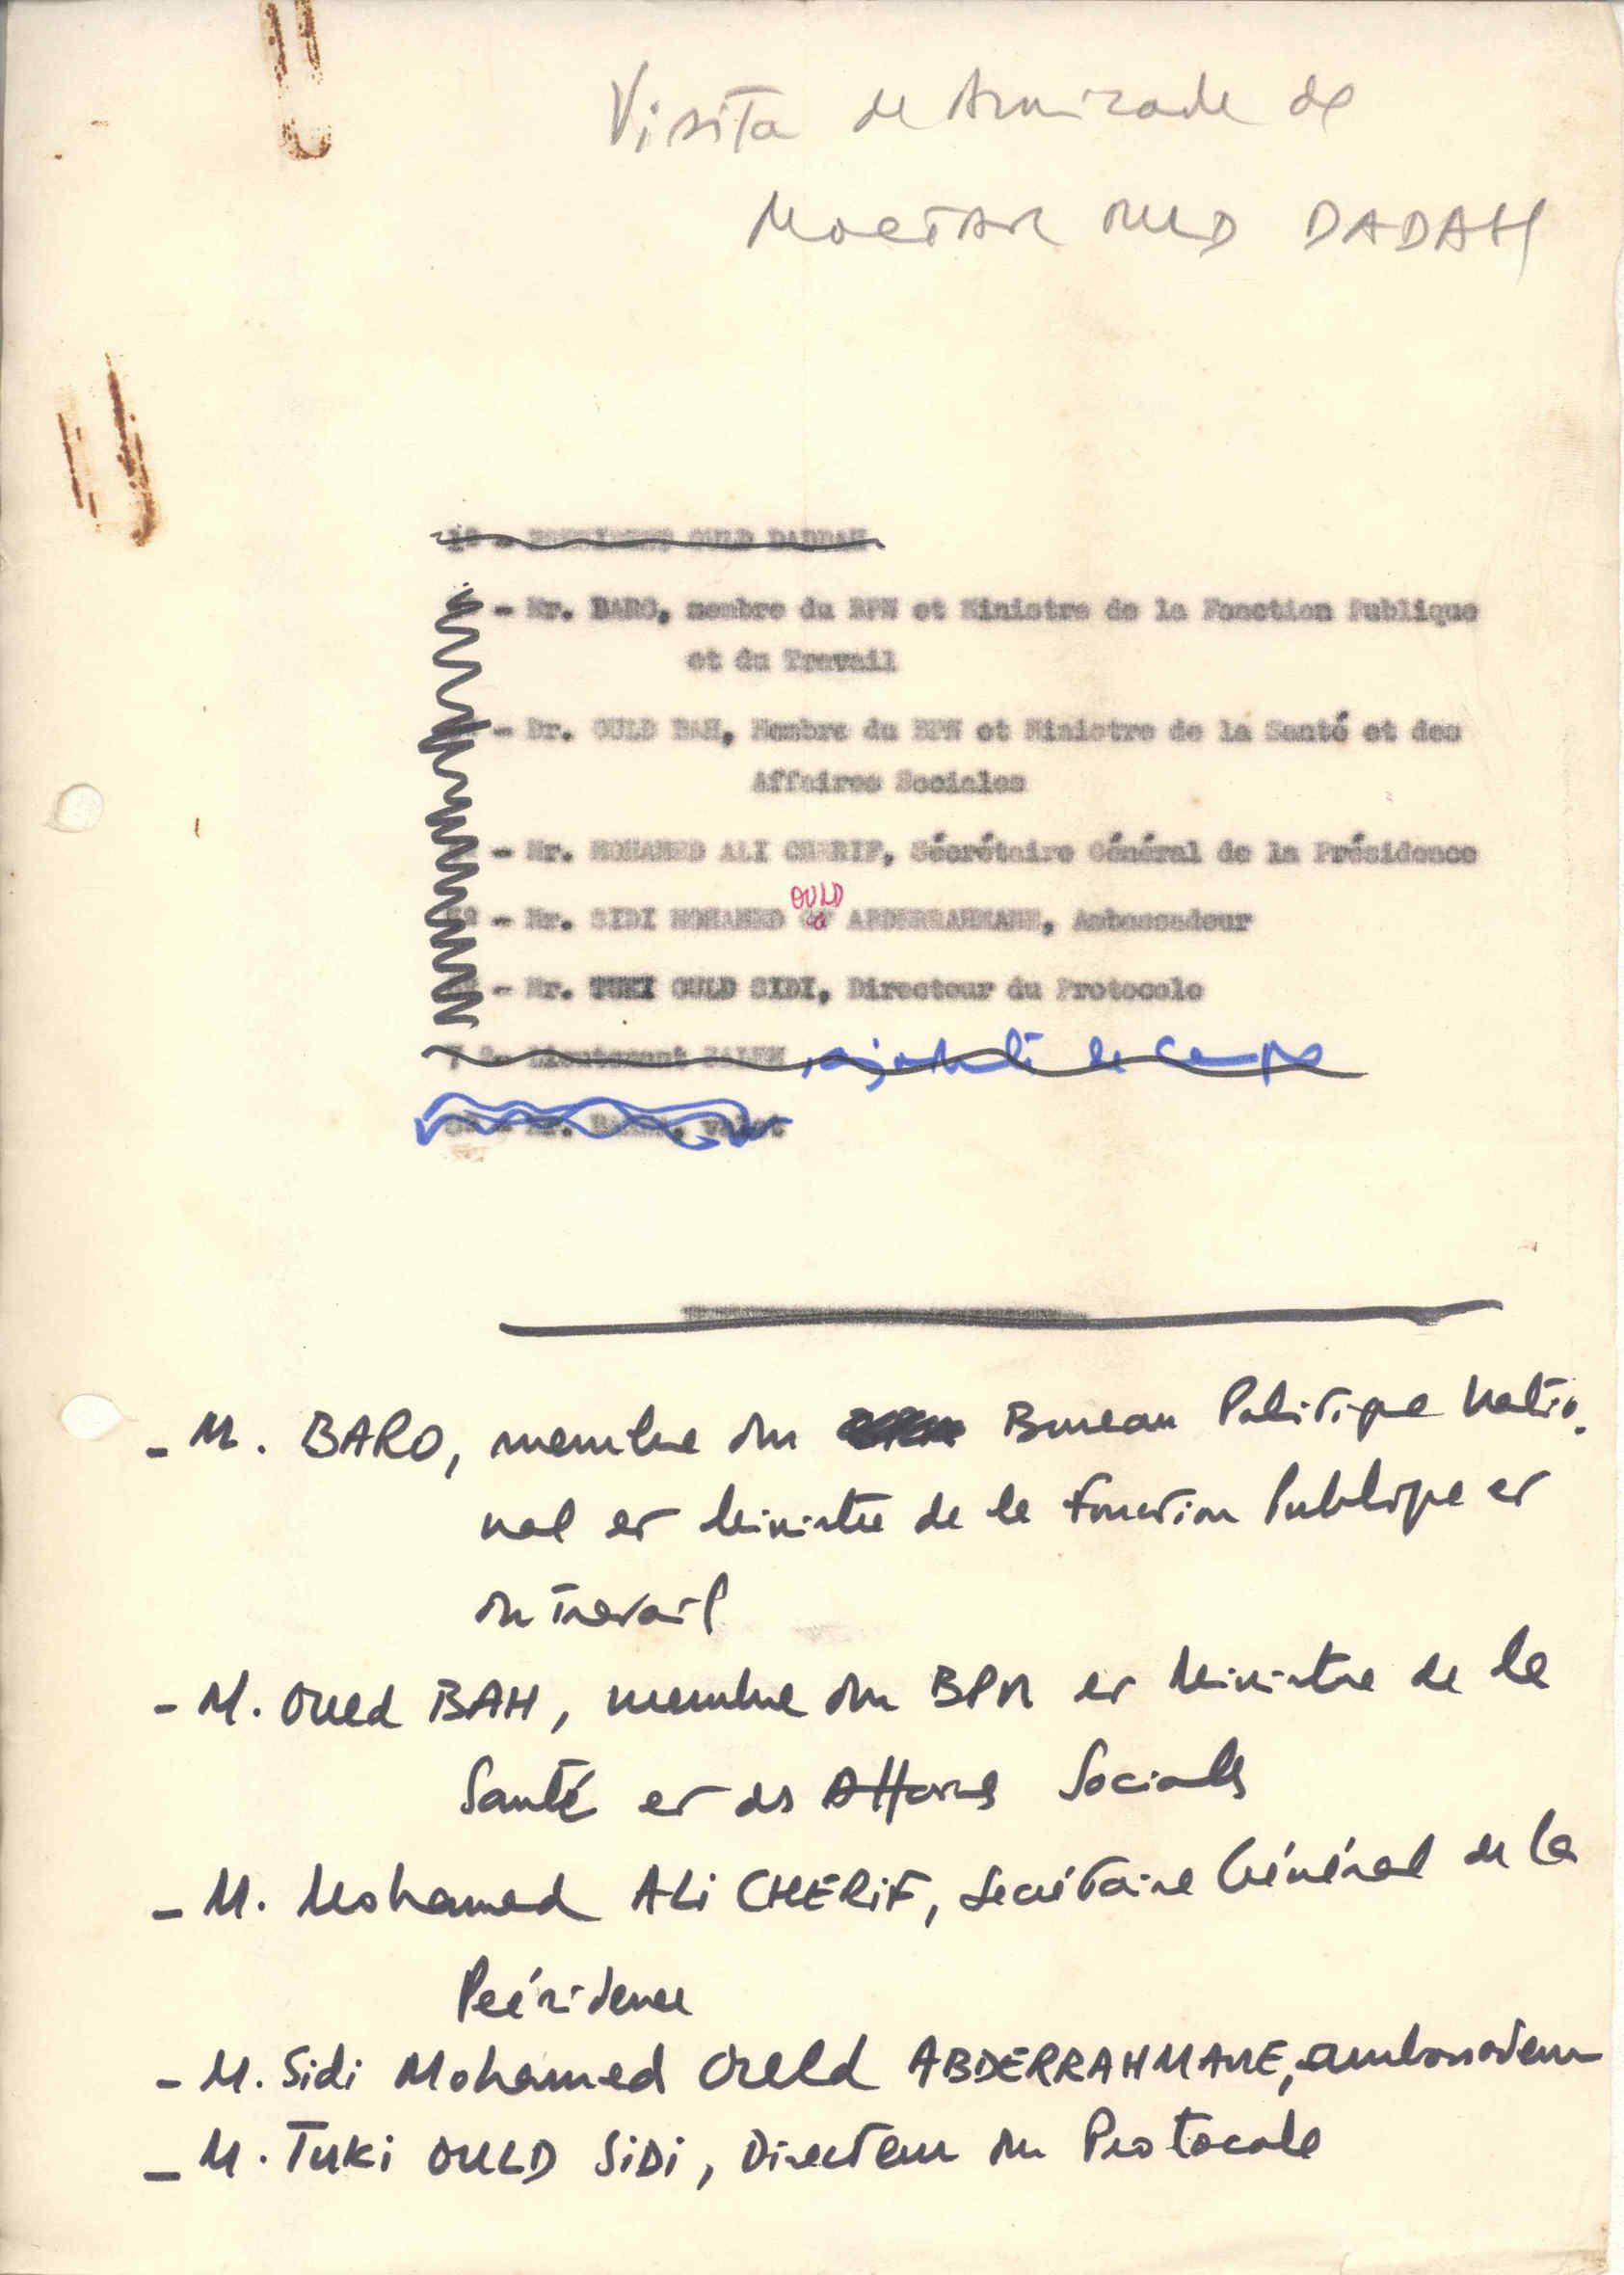 Visita de Amizade de
MOCTAR OULD DADAH
1º - PRESIDENT OULD DADDAH
- Mr. BARO, membre du BPN et Ministre de la Fonction Publique
et du Travail
- Dr. OULD BAH, Membre du BPN et Ministre de la Santé et des
Affaires Sociales
- Mr. MOHAMED ALI CHERIF, Sécrétaire Général de la Présidence
OULD
- Mr. SIDI MOHAMED ABDERRAHMANE, Ambassadeur
- Mr. TUKI OULD SIDI, Directeur du Protocole
7º- Lieutenant
Mr. valet
- M. BARO, membre du Bureau Politique Natio-
nal et Ministre de la Fonction Publique et
du Travail
- M. Ould BAH, membre du BPN et Ministre de la
Santé et des Affaires Sociales
- M. Mohamed ALi CHERiF, Secrétaire Général de la
Présidence
- M. Sidi Mohamed Ould ABDERRAHMANE, ambassadeur
- M. Tuki OULD SiDi, Directeur du Protocole